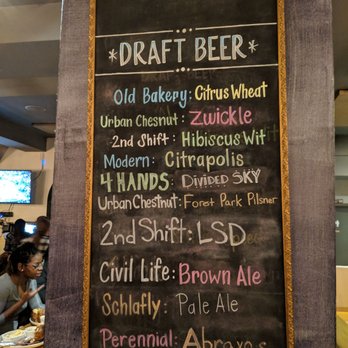 *DRAFT BEER*
Old Bakery: Citrus Wheat
Urban Chesnut: Zwickle
2nd Shift: Hibiscus Wit
Modern: Citrapolis
4 HANDS: DIVIDED SKY
Urban Chestnut: Forest Park Pilsner
2nd Shift: LSD
Civil Life: Brown Ale
Schlafly: Pale Ale
Perennial: Abraxas